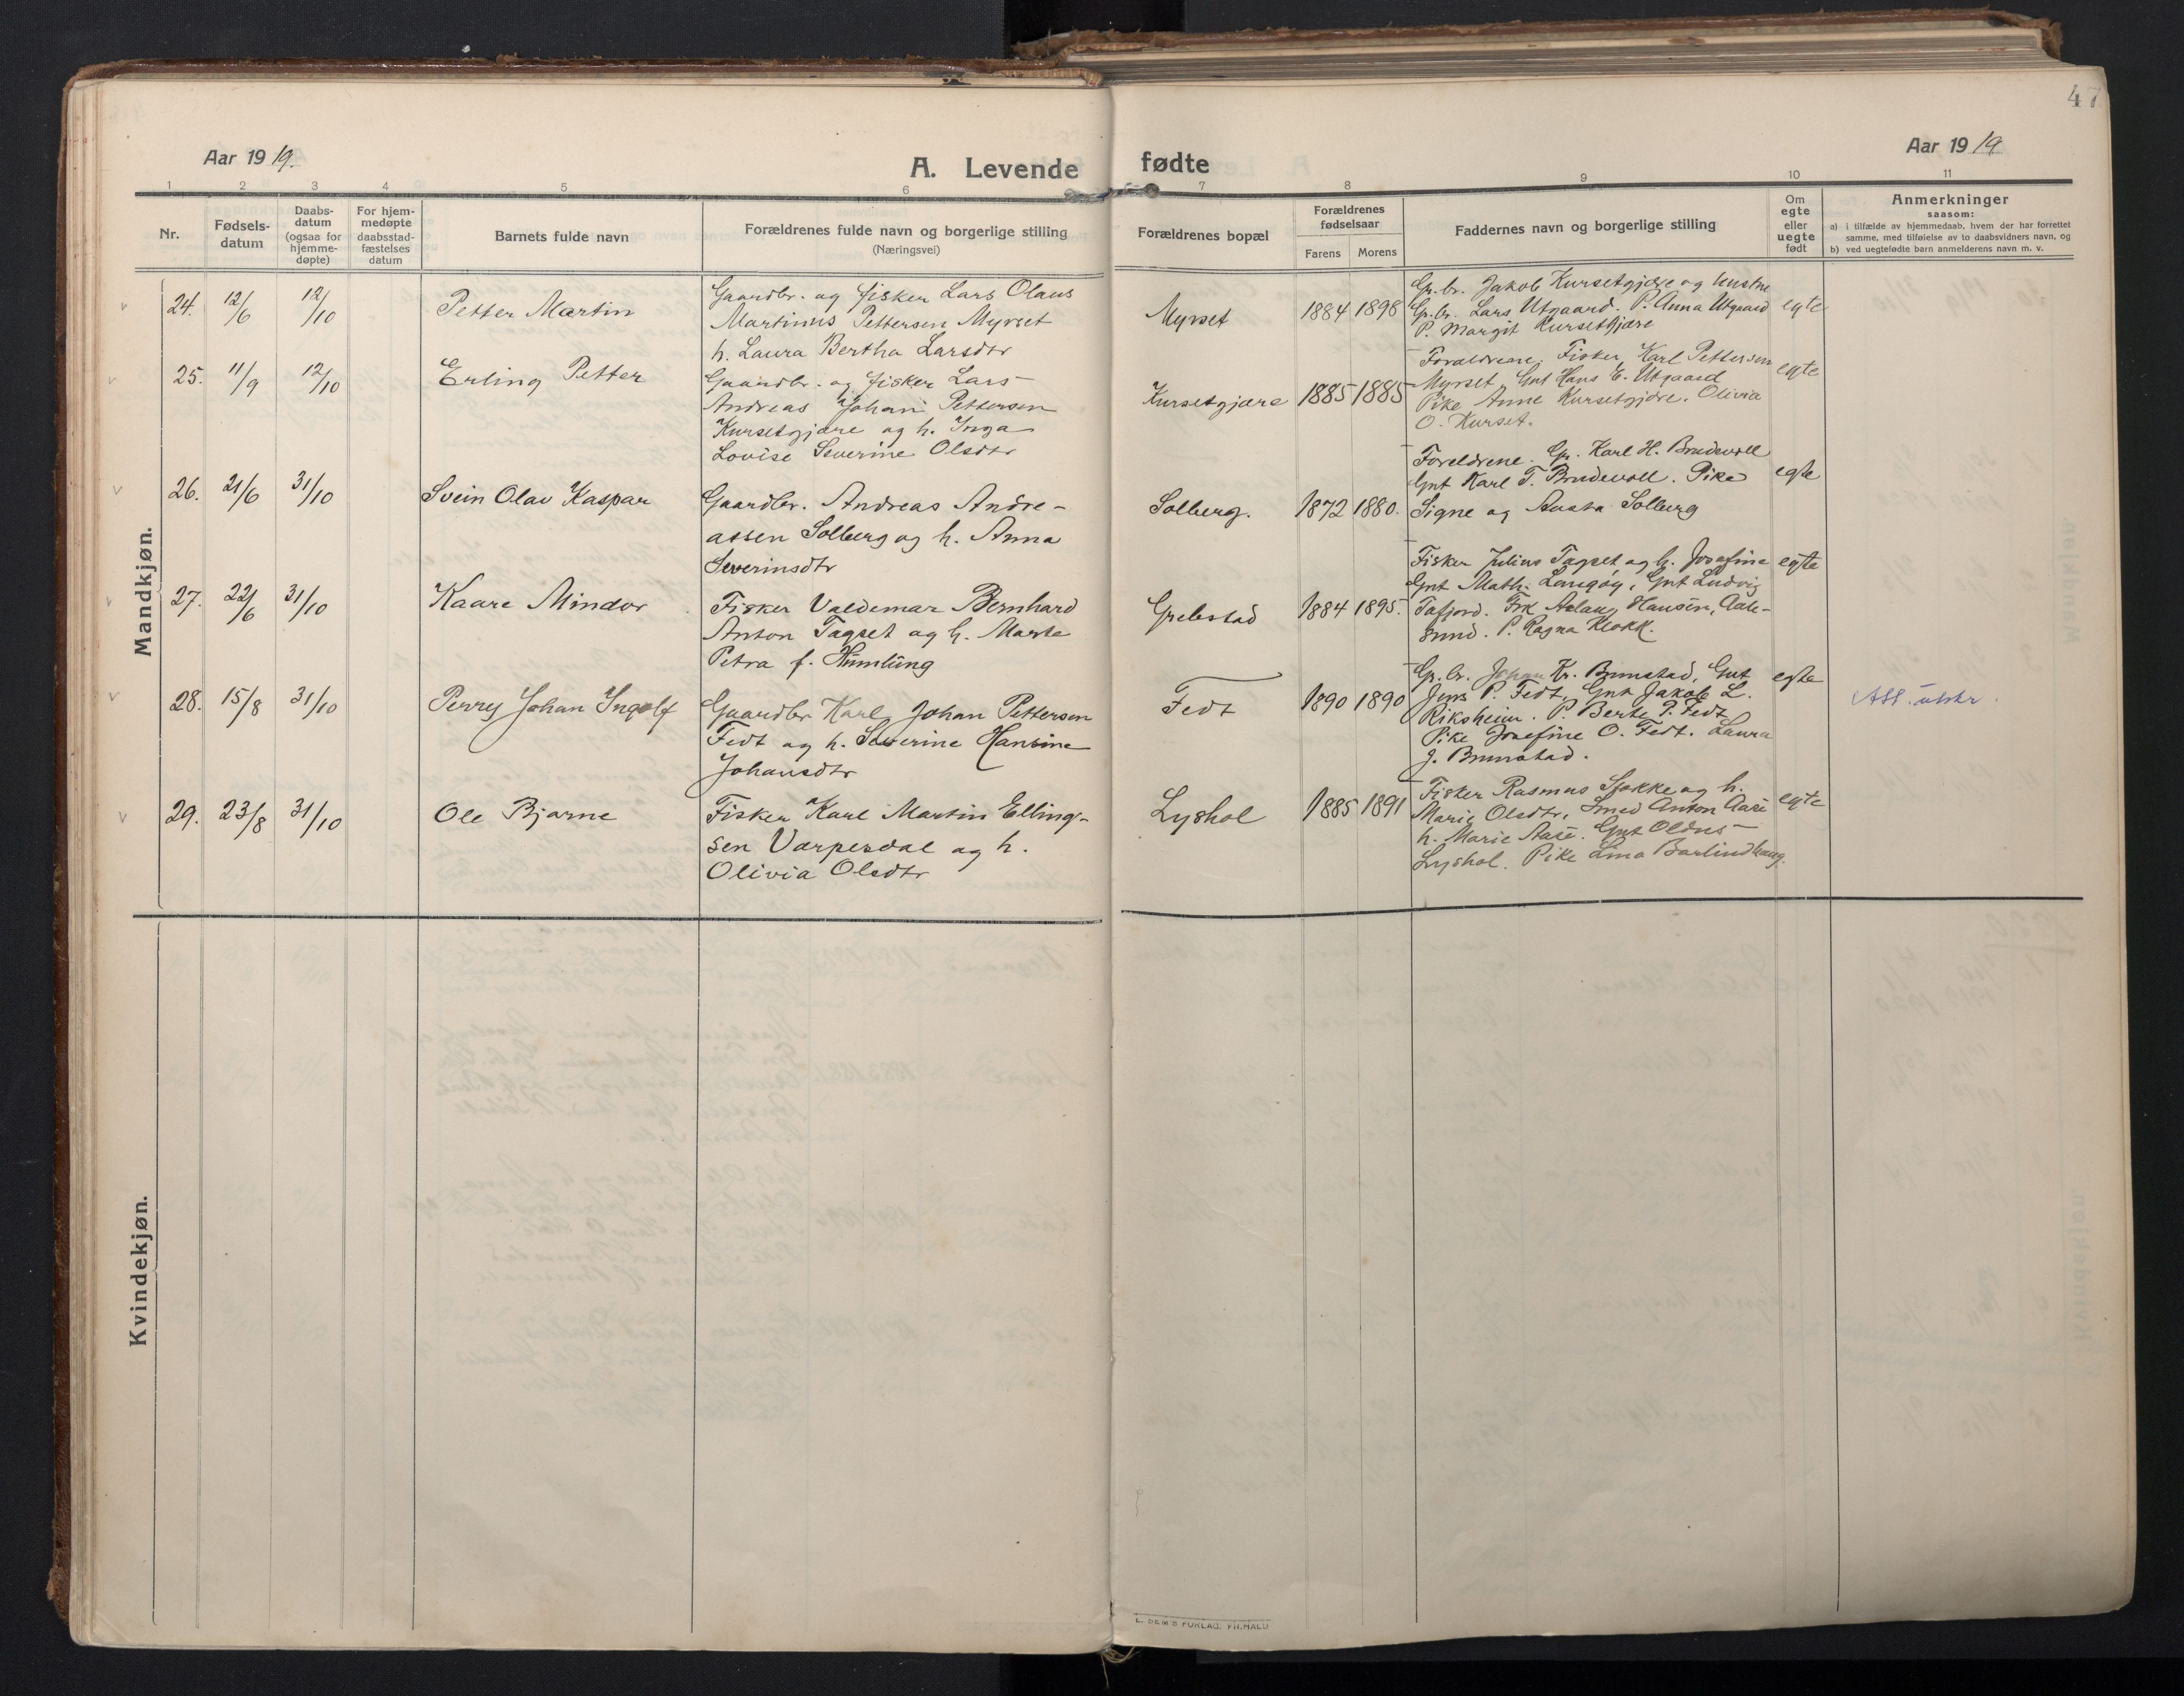 47
Aar 1919.
A. Levende fødte
Aar 1919
1 2 3 4 5 6 7 8 9 10 11
Nr.
Fødsels-
datum
Daabs-
datum
(ogsaa for
hjemme-
døpte)
For hjem-
medøpte
daabsstad-
fæstelses
datum
Barnets fulde navn
Forældrenes fulde navn og borgerlige stilling
(Næringsvei)
Forældrenes bopæl
Forældrenes
fødselsaar
Farens Morens
Faddernes navn og borgerlige stilling
Om
egte
eller
uegte
født
Anmerkninger
saasom:
a) i tilfælde av hjemmedaab, hvem der har forrettet
samme, med tilføielse av to daabsvidners navn, og
b) ved uegtefødte barn anmelderens navn m. v.
Mandkjøn.
24. 12/6 12/10 Petter Martin
Gaardbr. og fisker Lars Olaus
Martinus Pettersen Myrset
h. Laura Bertha Larsdtr
Myrset 1884 1898
Gr. br. Jakob Kursetgjære og hustru
Gr. br. Lars Utgaard. P. Anna Utgaard
P. Margit Kursetgjære
egte
25. 11/9 12/10 Erling Petter
Gaardbr. og fisker Lars
Andreas Johan Pettersen
Kursetgjære og h. Inga
Lovise Severine Olsdtr
Kursetgjære 1885 1885
Forældrene. Fisker Karl Pettersen
Myrset, Gut Hans E. Utgaard
Pike Anne Kursetgjære. Olivia
O. Kurset.
egte
26. 21/6 31/10 Svein Olav Kaspar
Gaardbr. Andreas Andre-
assen Solberg og h. Anna
Severinsdtr
Solberg. 1872 1880.
Foreldrene. Gr. Karl H. Brudevoll
Gut Karl T. Brudevoll. Pike
Signe og Aasta Solberg
egte
27. 22/6 31/10 Kaare Mindor
Fisker Valdemar Bernhard
Anton Tagset og h. Marta
Petra f. Humlung
Grebstad 1884 1895.
Fisker Julius Tagset og h. Josefine
Gut Math. Langøy, Gut Ludvig
Tafjord. Frk Aslaug Hansen, Aale-
sund. P. Ragna Klokk.
egte
28. 15/8 31/10 Perry Johan Ingolf
Gaardbr Karl Johan Pettersen
Fedt og h. Severine Hansine
Johansdtr
Fedt 1890 1890
Gr. br. Johan Kr. Brunstad, Gut
Jens P. Fedt, Gut Jakob L.
Riksheim. P. Berte P. Fedt
Pike Josefine O. Fedt. Laura
J. Brunstad.
egte
Att. utskr.
29. 23/8 31/10 Ole Bjarne
Fisker Karl Martin Elling-
sen Varpesdal og h.
Olivia Olsdtr
Lyshol 1885 1891
Fisker Rasmus Slokke og h.
Marie Olsdtr, Smed Anton Aase
h. Marie Aase. Gut
Lyshol. Pike Lina Barlindhaug.
egte
Kvindekjøn.
E. SEM'S FORLAG. FR.HALD